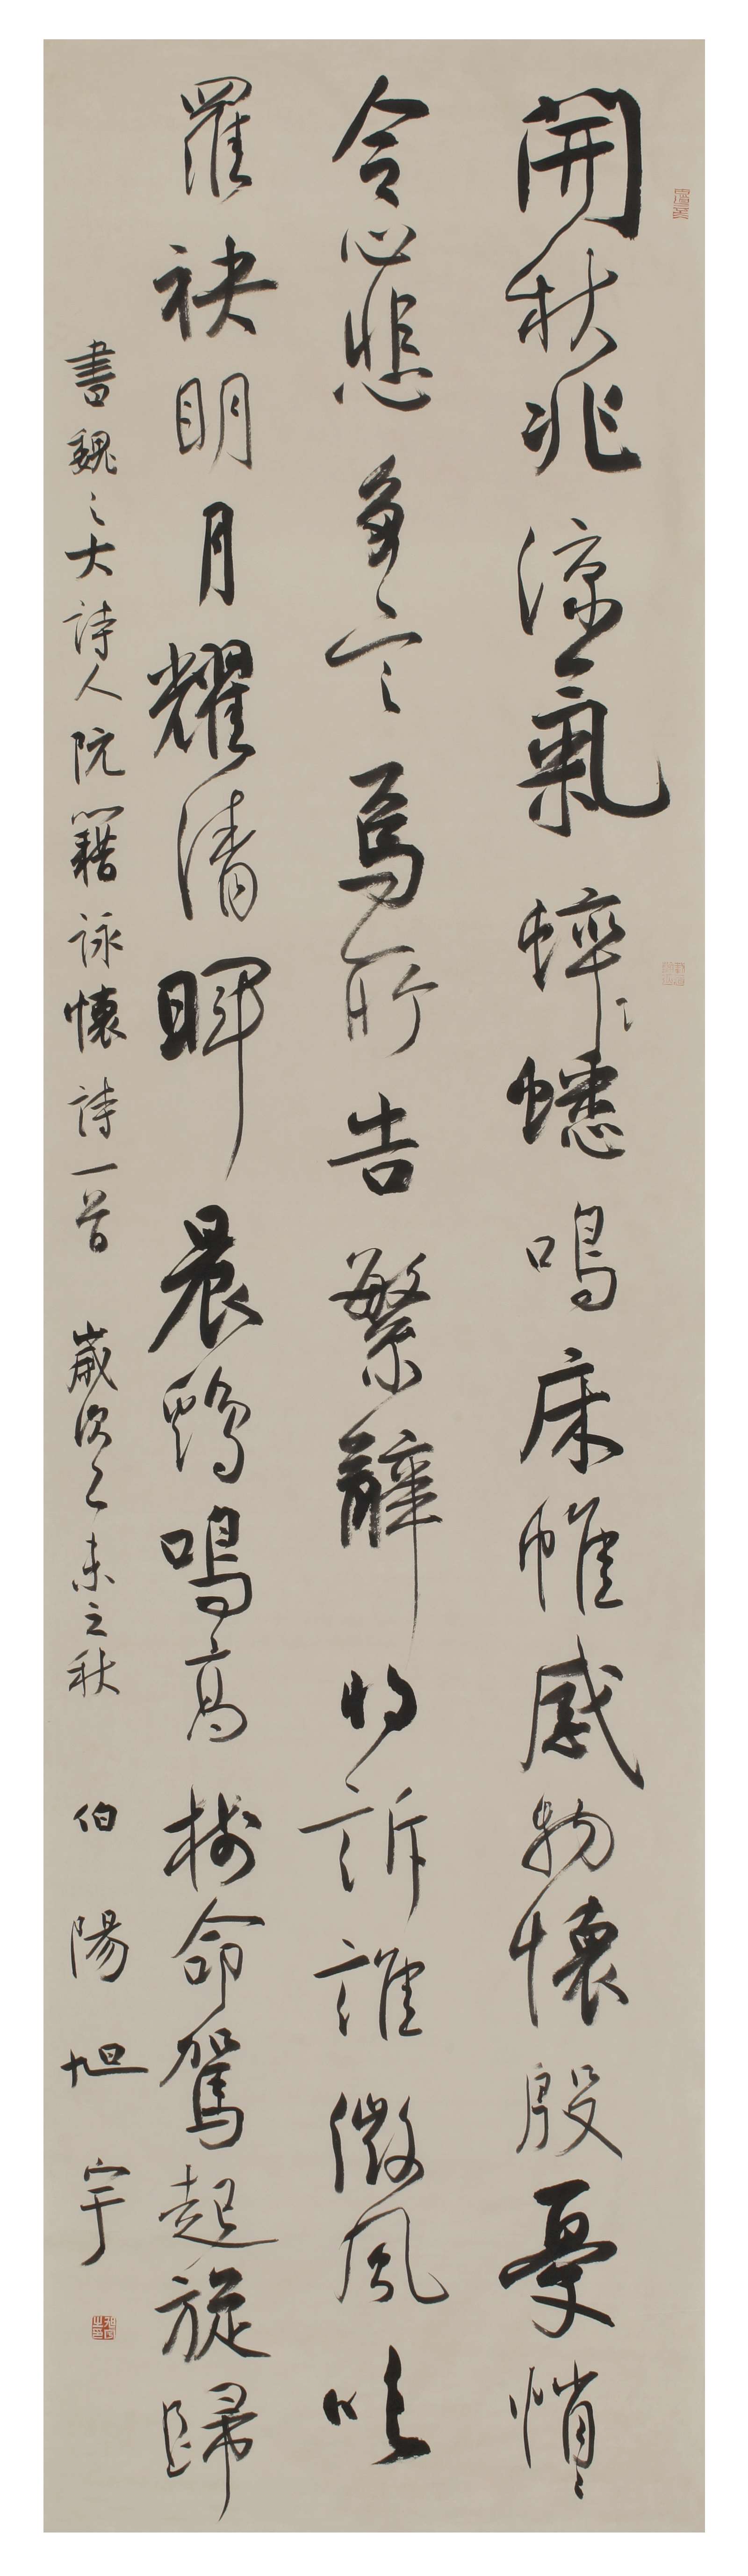 開秋兆涼氣蟀蟋鳴床帷感物懷殷憂悄〻
令心悲多言焉所告繁辭將訴誰微風吹
羅袂明月耀清暉晨鷄鳴高樹命駕起旋歸
書魏之大詩人阮籍詠懷詩一首 歲次乙未之秋 伯陽旭宇